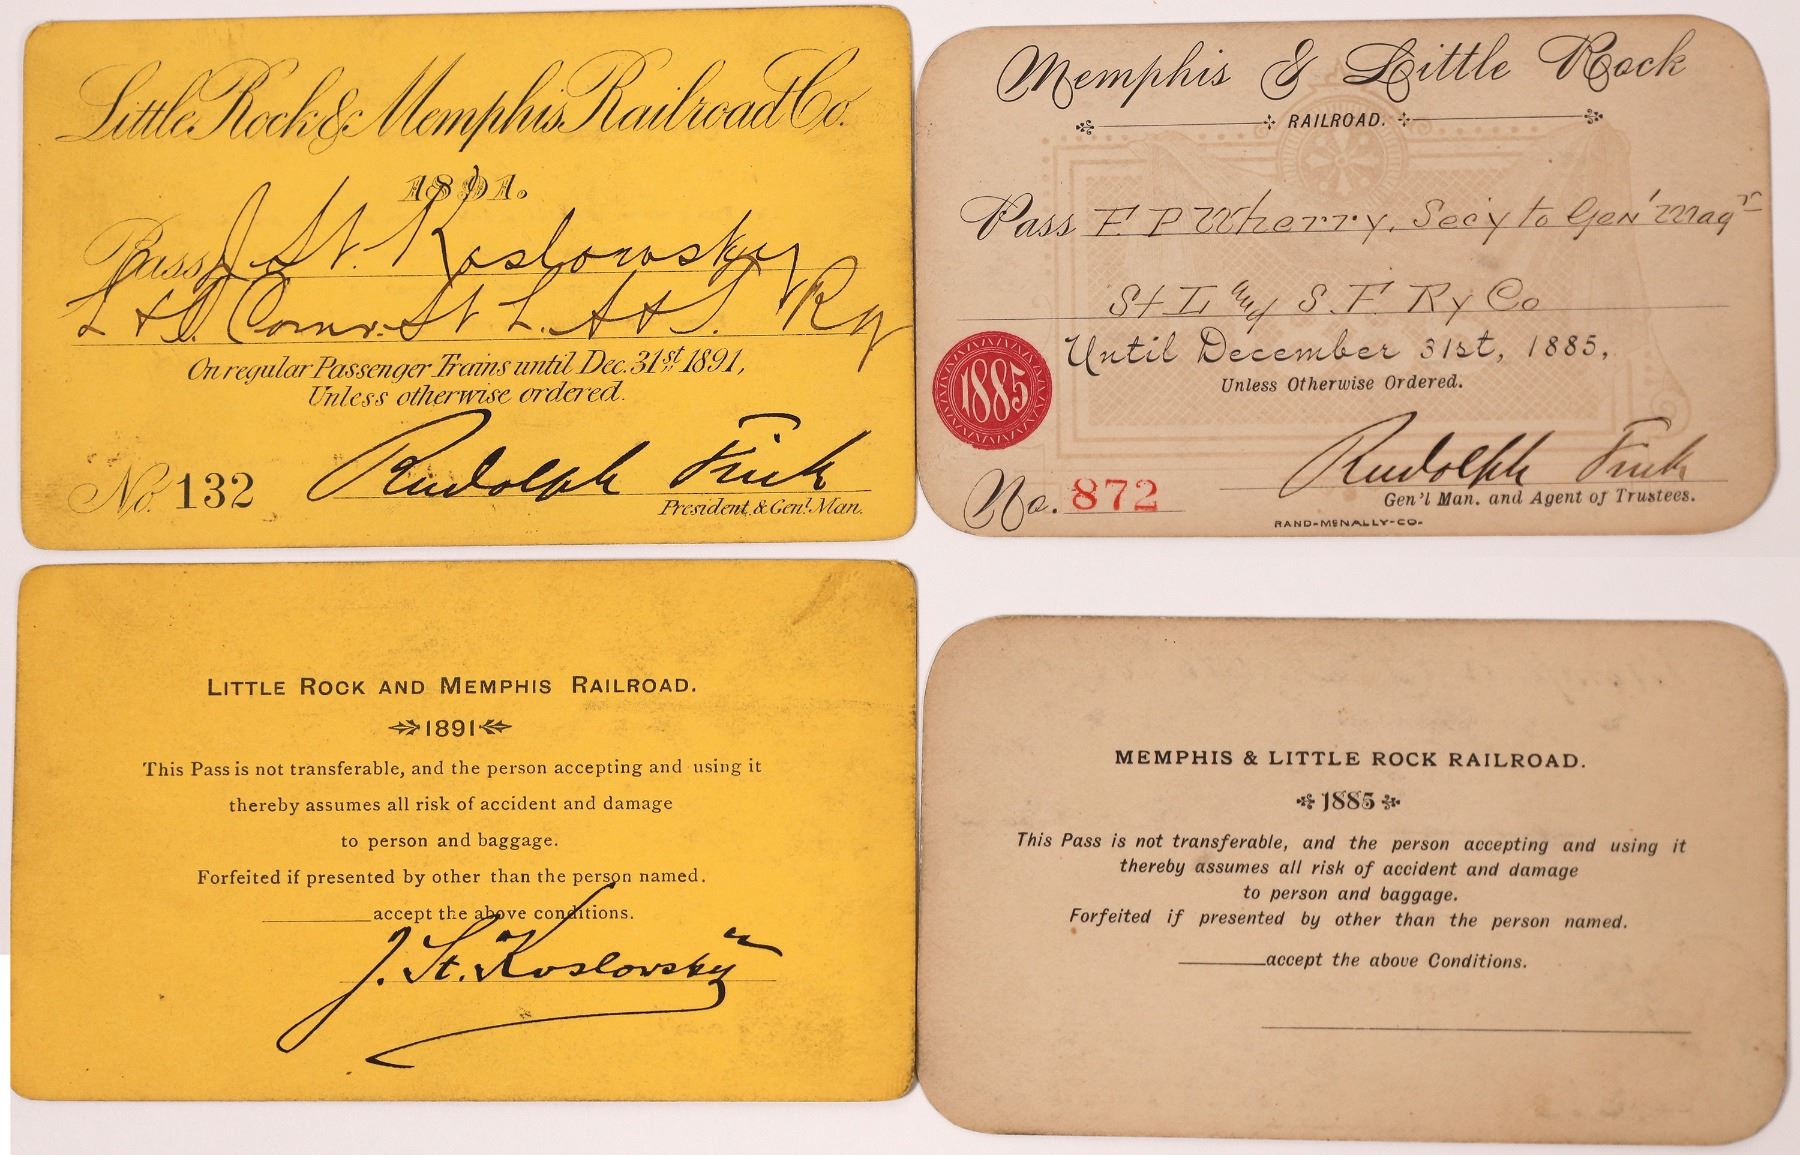 Little Rock & Memphis Railroad Co.
1891.
Pass J. St. Koslowsky
L & I. Comr. St L. A & T. Ry
On regular Passenger Trains until Dec. 31st 1891,
Unless otherwise ordered.
Rudolph Fink
No. 132
President, & Genl. Man.
Memphis & Little Rock
RAILROAD.
Pass F P Wherry, Secy to Gen'l Magr
St L and S. F. Ry Co
1885
Until December 31st, 1885,
Unless Otherwise Ordered.
Rudolph Fink
No. 872
Gen'l Man. and Agent of Trustees.
RAND-MCNALLY-CO-
LITTLE ROCK AND MEMPHIS RAILROAD.
1891
This Pass is not transferable, and the person accepting and using it
thereby assumes all risk of accident and damage
to person and baggage.
Forfeited if presented by other than the person named.
accept the above conditions.
J. St. Koslowsky
MEMPHIS & LITTLE ROCK RAILROAD.
1885
This Pass is not transferable, and the person accepting and using it
thereby assumes all risk of accident and damage
to person and baggage.
Forfeited if presented by other than the person named.
accept the above Conditions.